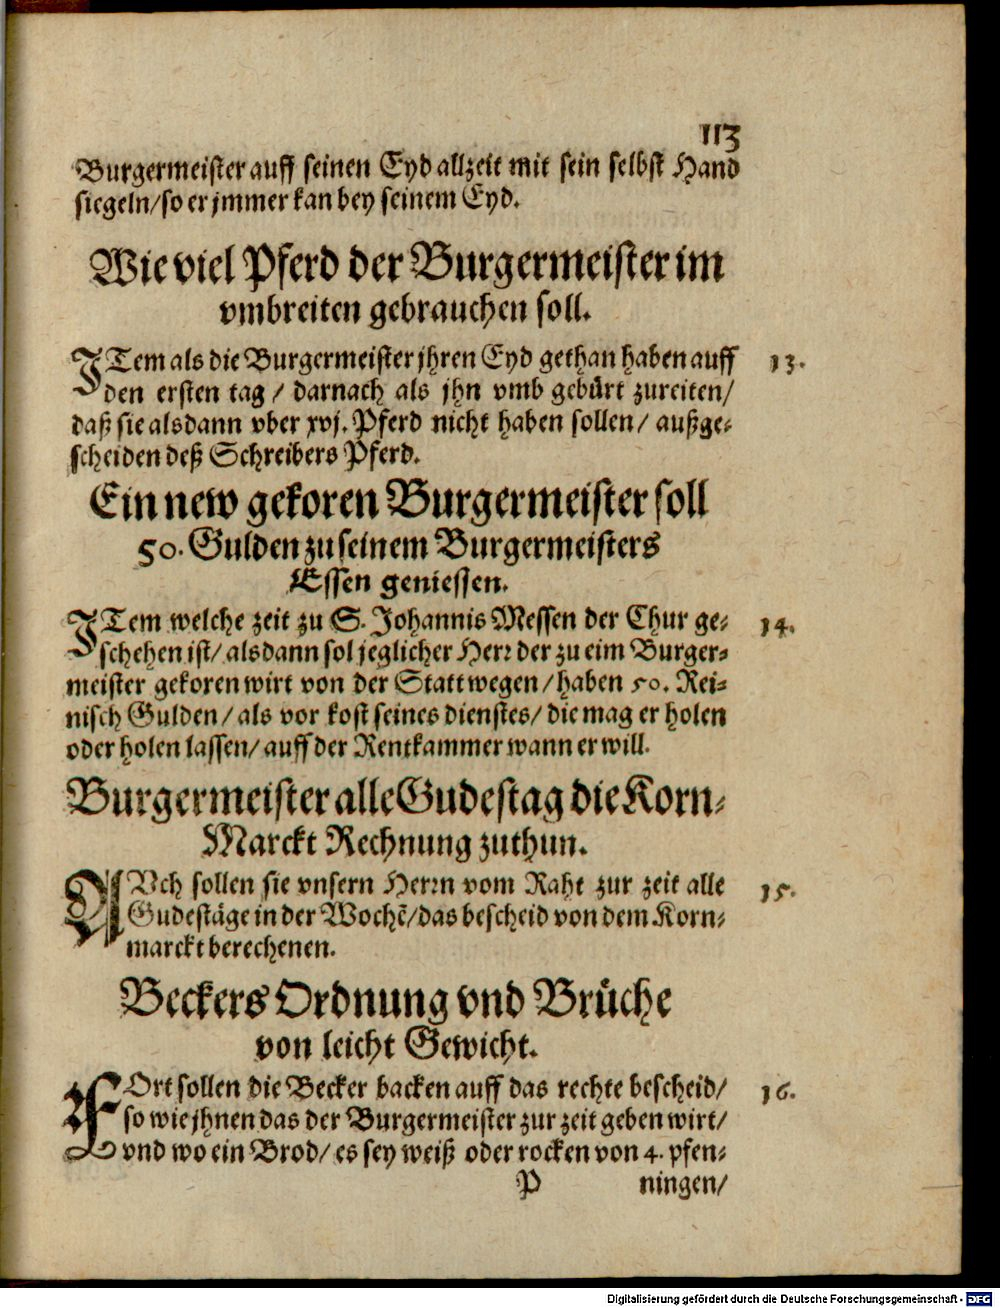 113
Burgermeister auff seinen Eyd allzeit mit sein selbst Hand
siegeln/so er jmmer kan bey seinem Eyd.
Wie viel Pferd der Burgermeister im
vmbreiten gebrauchen soll.
ITem als die Burgermeister jhren Eyd gethan haben auff
13.
den ersten tag / darnach als jhn vmb gebürt zureiten/
daß sie alsdann vber xvj. Pferd nicht haben sollen/ außge-
scheiden deß Schreibers Pferd.
Ein new gekoren Burgermeister soll
50. Gulden zu seinem Burgermeisters
Essen geniessen.
ITem welche zeit zu S. Johannis Messen der Chur ge-
14.
schehen ist/ alsdann sol jeglicher Herr der zu eim Burger-
meister gekoren wirt von der Statt wegen/ haben 50. Rei-
nisch Gulden/ als vor kost seines dienstes/ die mag er holen
oder holen lassen/ auff der Rentkammer wann er will.
Burgermeister alle Gudestag die Korn-
Marckt Rechnung zuthun.
AUch sollen sie vnsern Herrn vom Raht zur zeit alle
15.
Gudestäge in der Wochẽ/das bescheid von dem Korn-
marckt berechenen.
Beckers Ordnung vnd Brüche
von leicht Gewicht.
FOrt sollen die Becker backen auff das rechte bescheid/
16.
so wie jhnen das der Burgermeister zur zeit geben wirt/
vnd wo ein Brod/ es sey weiß oder rocken von 4. pfen-
P ningen/
Digitalisierung gefördert durch die Deutsche Forschungsgemeinschaft - DFG